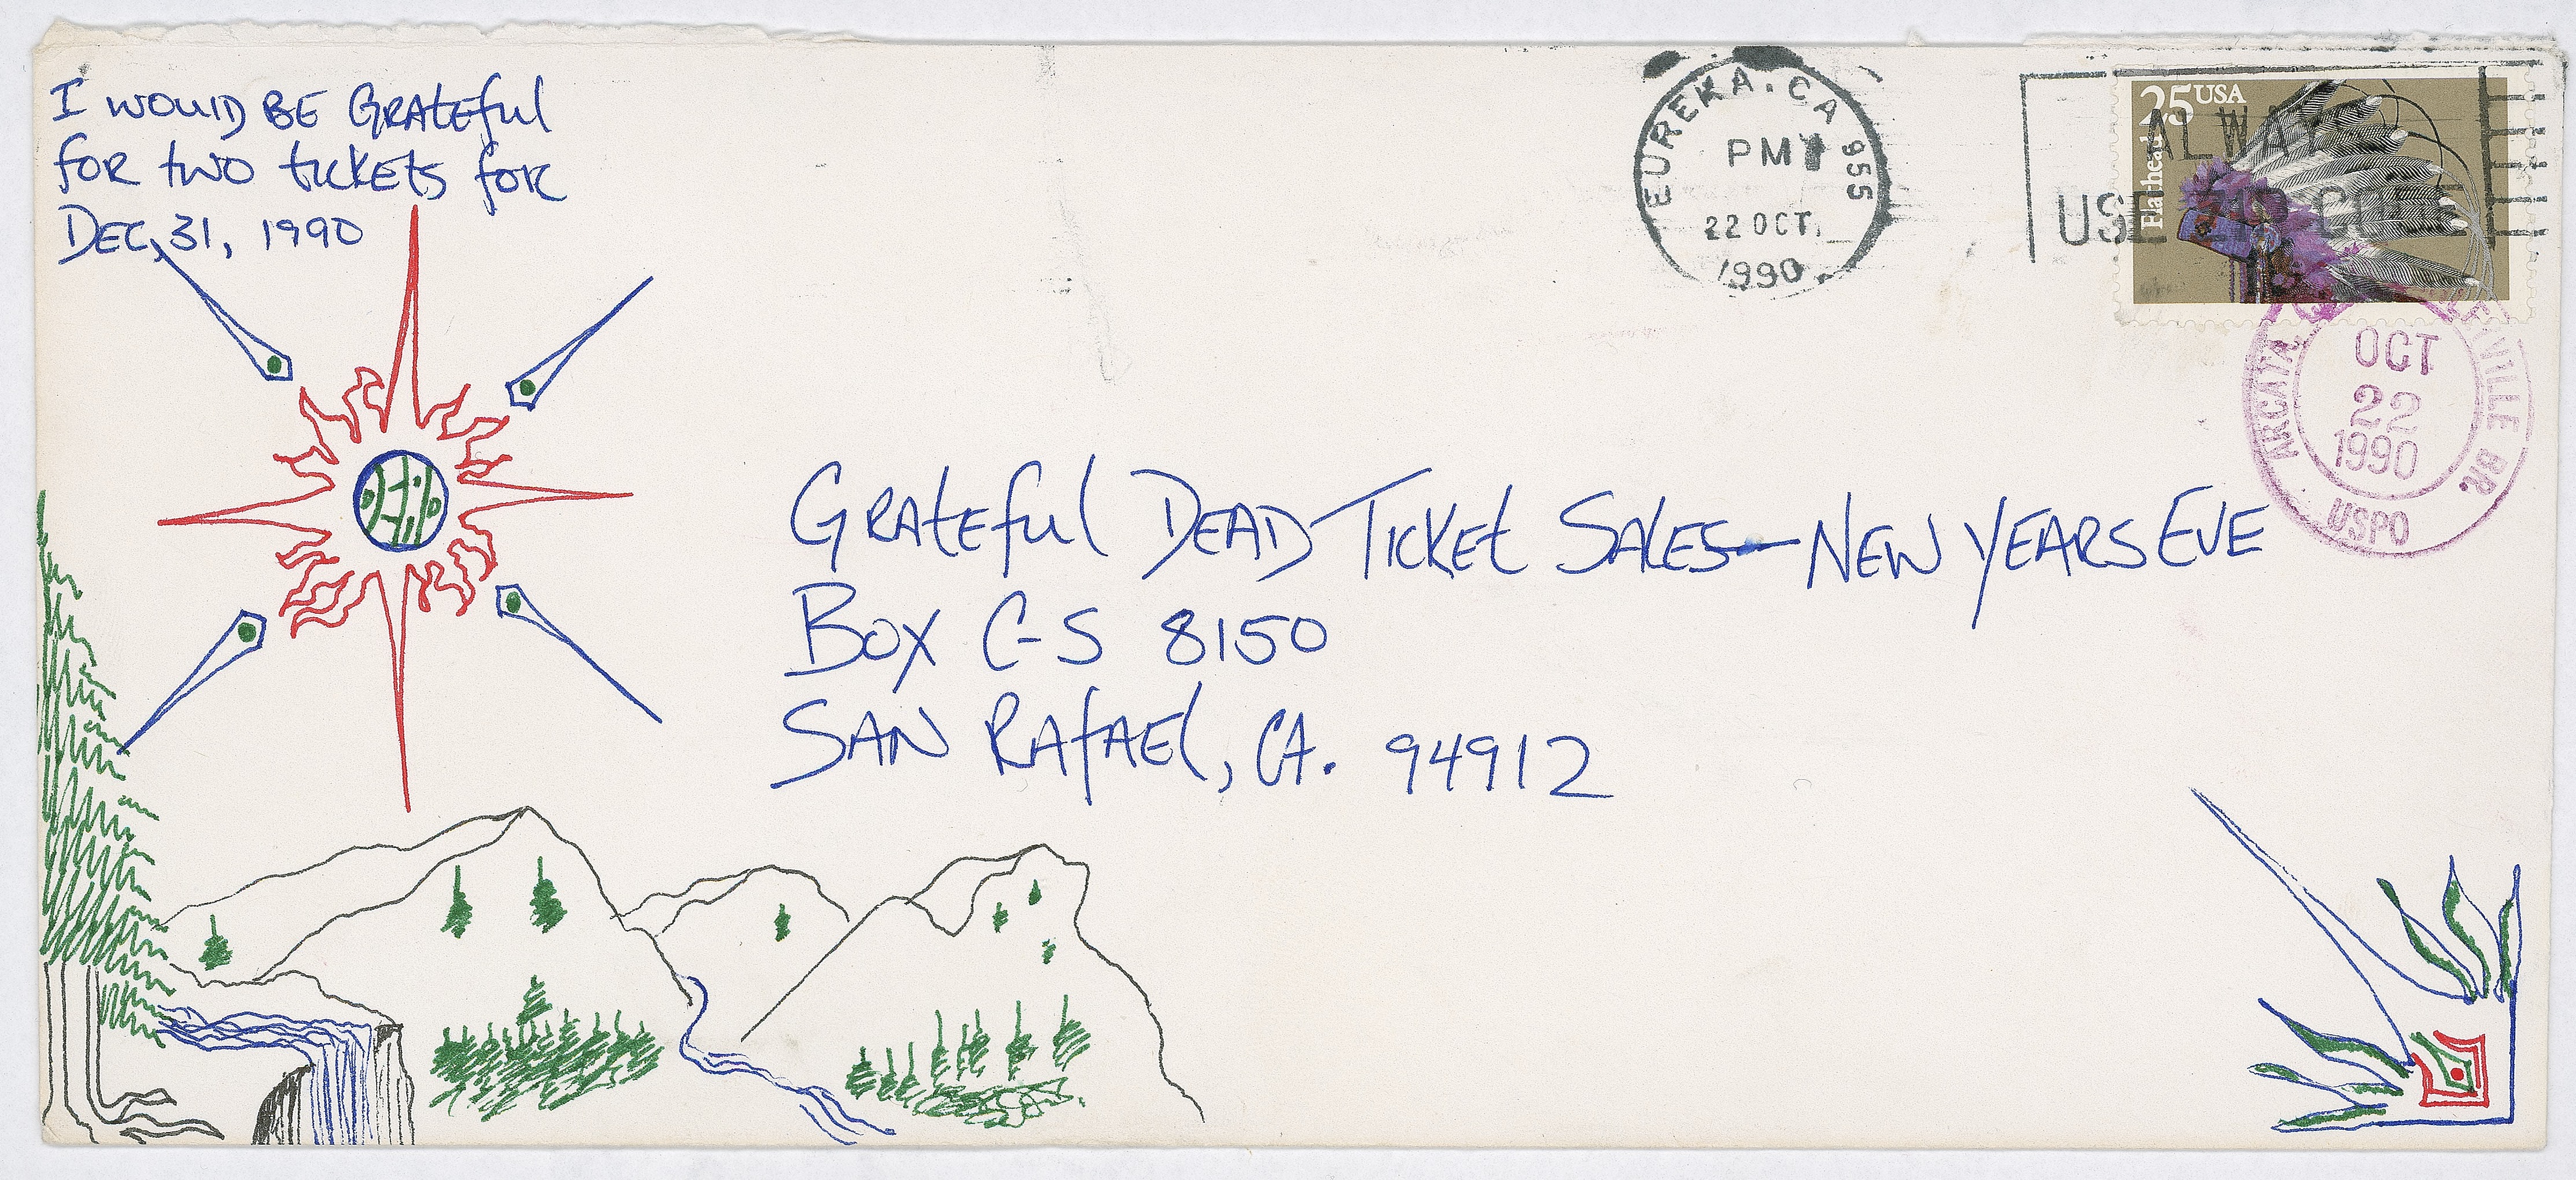 I WOULD BE GRATEful
FOR two tickets foR
DEC, 31, 1990
EUREKA, CA 955
PM
22 OCT
1990
ALWAYS
USE ZIP CODE
25 USA
Flathead
ARCATA
BR.
OCT
22
1990
USPO
GRATEful DEAD TICKEt SALES—NEW YEARS EVE
BOX C-S 8150
SAN RAfAEl, CA. 94912